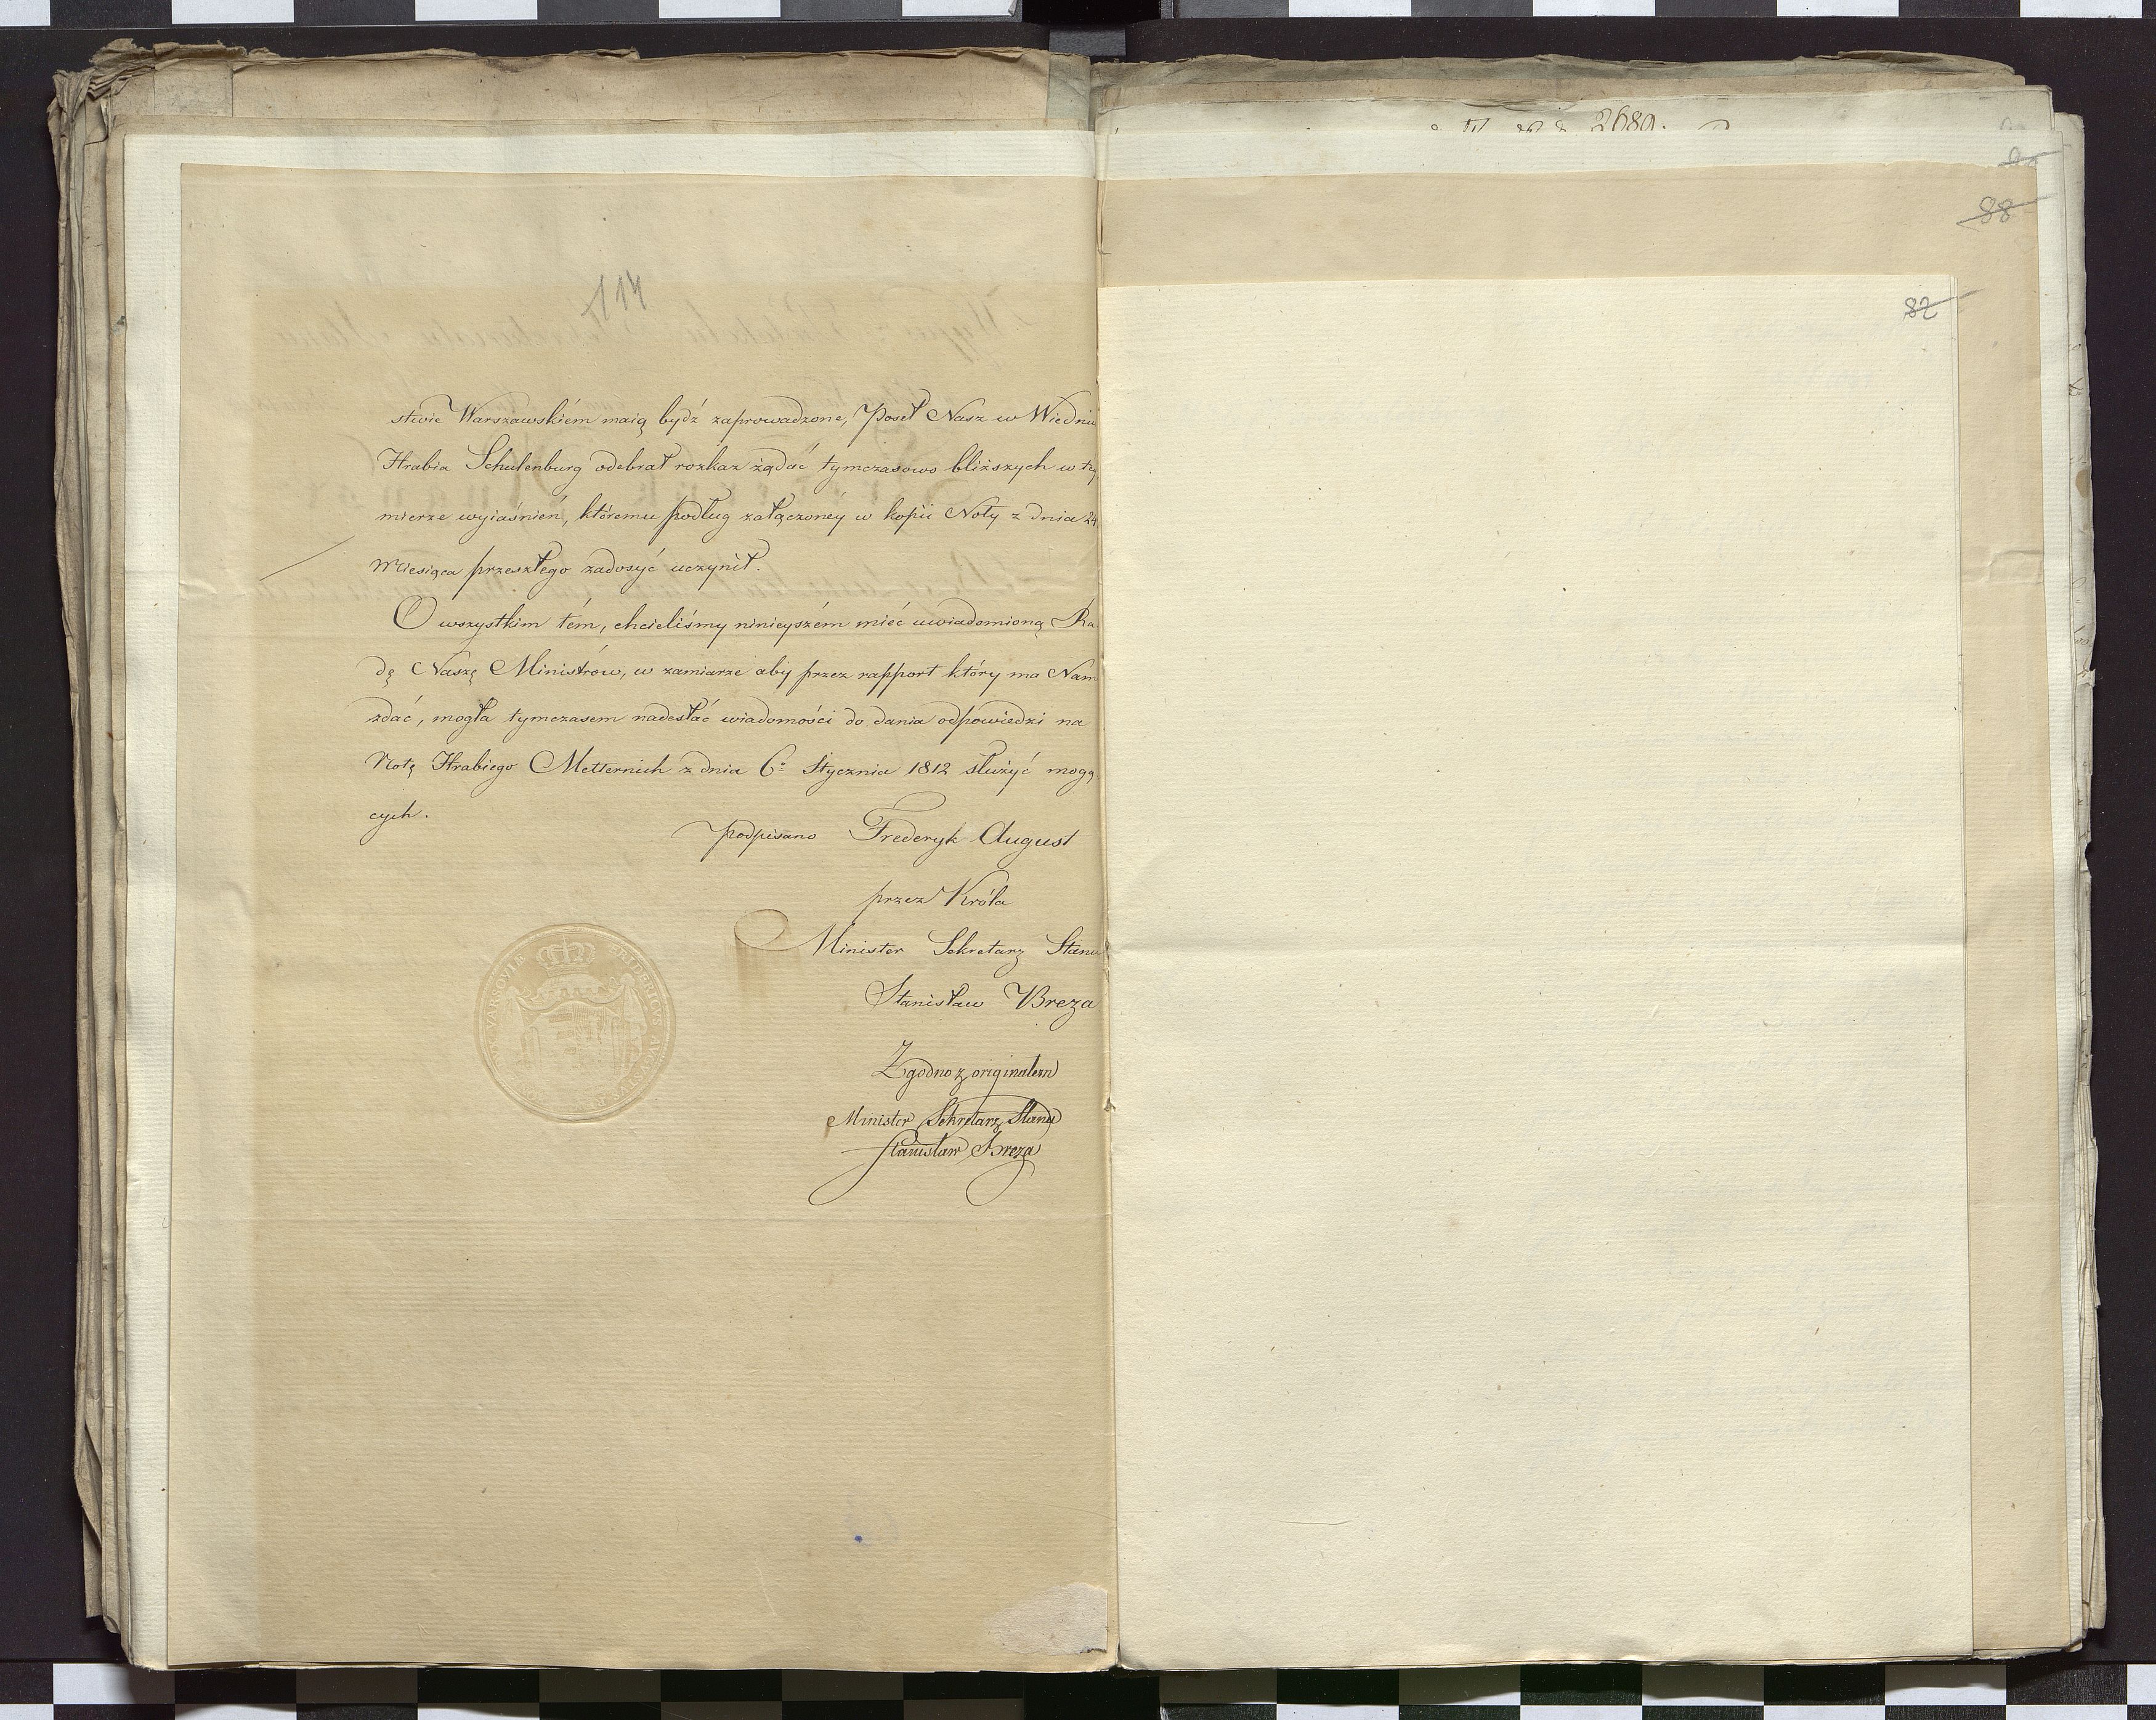 114
stwie Warszawskiém maią bydź zaprowadzone, Poseł Nasz w Wiedniu
Hrabia Schulenburg odebrał rozkaz żądać tymczasowo bliższych w téy
mierze wyiaśnień, któremu podług załączonéy w kopii Noty z dnia 24
Miesiąca przeszłego zadosyć uczynił.
O wszystkim tém, chcieliśmy ninieyszém mieć uwiadomioną Ra
dę Naszę Ministrów, w zamiarze aby przez rapport który ma Nam
zdać, mogła tymczasem nadesłać wiadomości do dania odpowiedzi na
Notę Hrabiego Metternich z dnia 6º Stycznia 1812 służyć mogą
cych.
Podpisano Frederyk August
przez Króla
Minister Sekretarz Stanu
Stanisław Breza
Zgodno z originałem
Minister Sekretarz Stanu
Stanisław Breza
FRIDERICVS AVGVSTVS
VARSOVIÆ
2680.
88
82